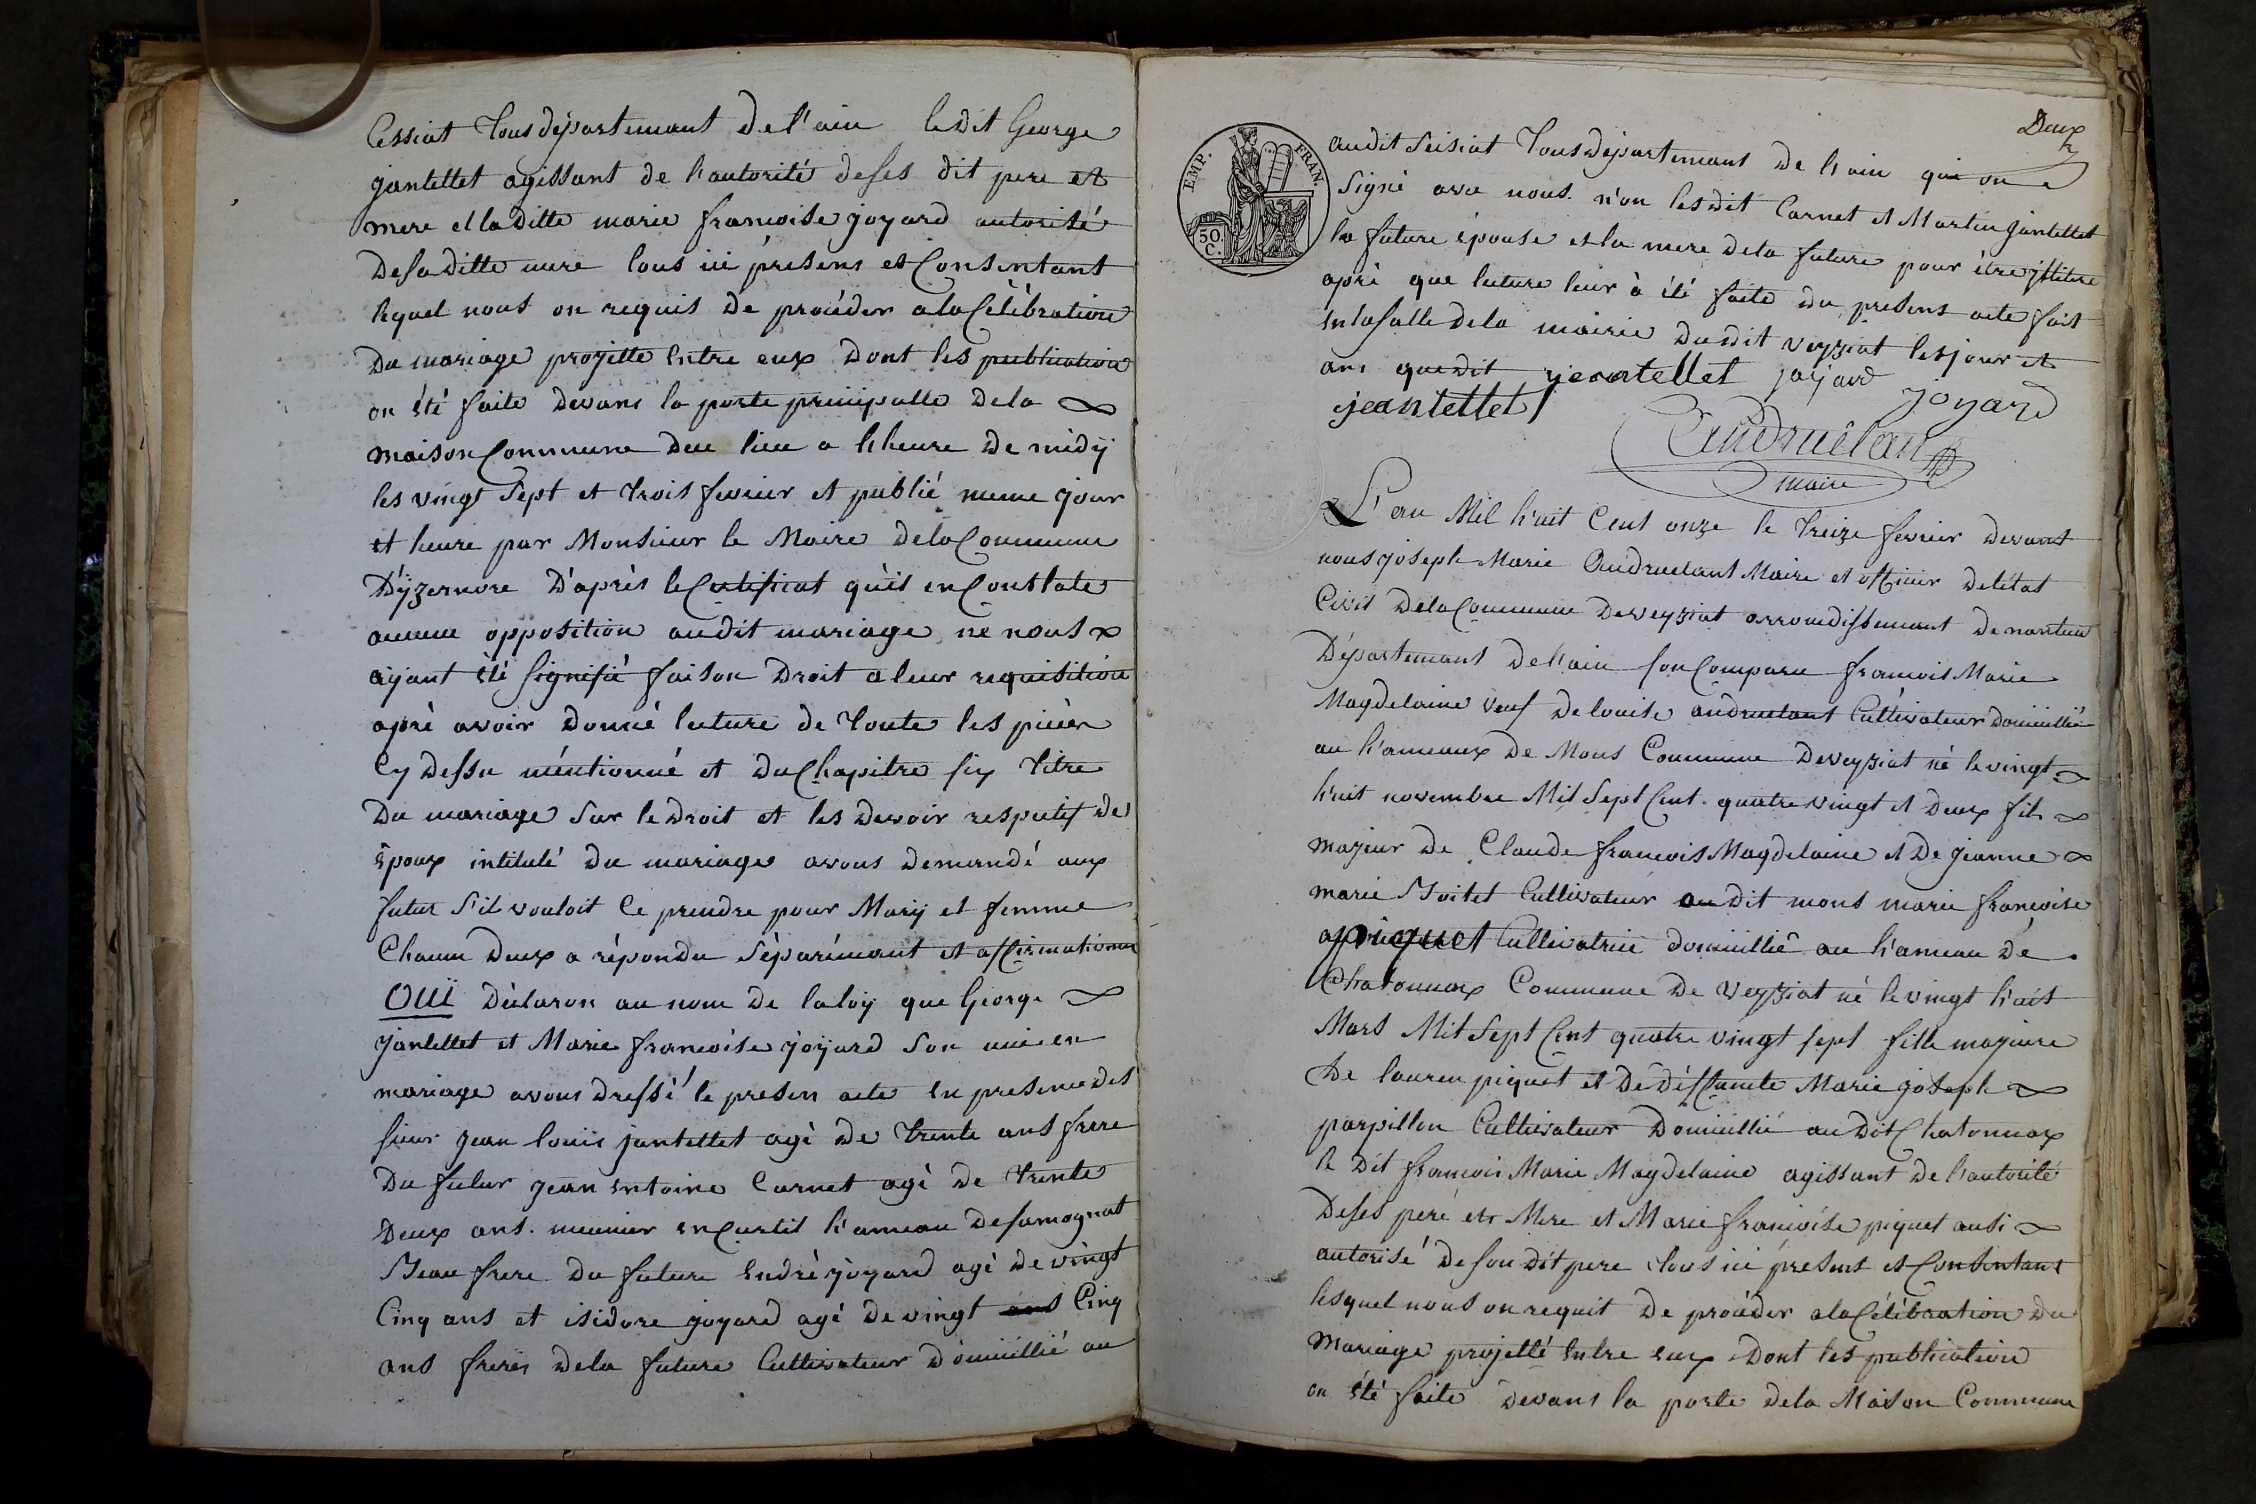 Cessiat tous département de l'ain le dit George
jantellet agissant de l'autorité de ses dit pere et
mere et la ditte marie francoise joyard autorisé
de sa ditte mere tous ici présens et Consentant
lequel nous on requis de procéder a la Célébration
du mariage projette entre eux dont les publication
on été faite devans la porte principalle de la
maison Commune du lieu a l'heure de midÿ
les vingt sept et trois fevrier et publié meme jour
et heure par Monsieur le Maire de la Commune
D'ÿzernore D'après le Certificat qu'il en Constate
aucune opposition au dit mariage ne nous
aÿant été signifié faison droit a leur requisition
aprè avoir donné lecture de toute les pièces
Cy dessu méntionné et du Chapitre six titre
du mariage sur le droit et les devoir respectif de
époux intitulé du mariage avons demandé aux
futur s'il vouloit Ce prendre pour Marÿ et femme
Chacun deux a répondu séparément et affirmativement
OUÏ déclaron au nom de la loÿ que George
jantellet et Marie francoise joÿard son unie en
mariage avons dressé le presen acte en presence des
sieur jean louis jantellet agé de trente ans frere
du futur jean antoine Carnet agé de trente
deux ans. meunier en Curtil h'ameau de samognat
Beau frere du future André joyard agé de vingt
Cinq ans et isidore joyard agé de vingt ans Cinq
ans freres de la future Cultivateur domicillié au
Deux
EMP. FRAN.
50. C.
audit Seisiat tous département de l'ain qui on
signé avec nous. n'on les dit Carnet et Martin jantellet
la future épouse et la mere de la future pour ètre jllitere
aprè que lecture leur à été faite du presens acte fait
en la salle de la mairie du dit veyziat les jour et
ans que dit jeantellet joyard
jeantellet joyard
Andruétan
maire
L'an Mil h'uit Cent onze le treize fevrier devant
nous joseph Marie Andruetant Maire et officier de létat
Civil de la Commune de veyziat arroundissement de nantua
Département de l'ain son Comparu francois Marie
Magdelaine veuf de louise andruetant Cultivateur domicillié
au h'ameaux de Mons Commune de veyziat né le vingt
h'uit novembre Mil Sept Cent. quatre vingt et deux fils
majeur de Claude francois Magdelaine et De jeanne
marie Boitet Cultivateur au dit mons marie francoise
piquet Cultivatrice domicillié au h'ameau de
Chatonnax Commune de veyziat né le vingt h'uit
Mars Mil Sept Cent quatre vingt sept fille majeure
De lauren piquet et De déffunte Marie joseph
parpillon Cultivateur Domicillié au dit Chatonnax
le dit francois Marie Magdelaine agissant de l'autorité
De ses peré et Mere et Marie francoise piquet ausi
autorisé de son dit pere tous ici présent et Consentant
lesquel nous on requit de procéder a la Célébration du
mariage projetté entre eux dont les publication
on été faite devans la porte de la Maison Commune